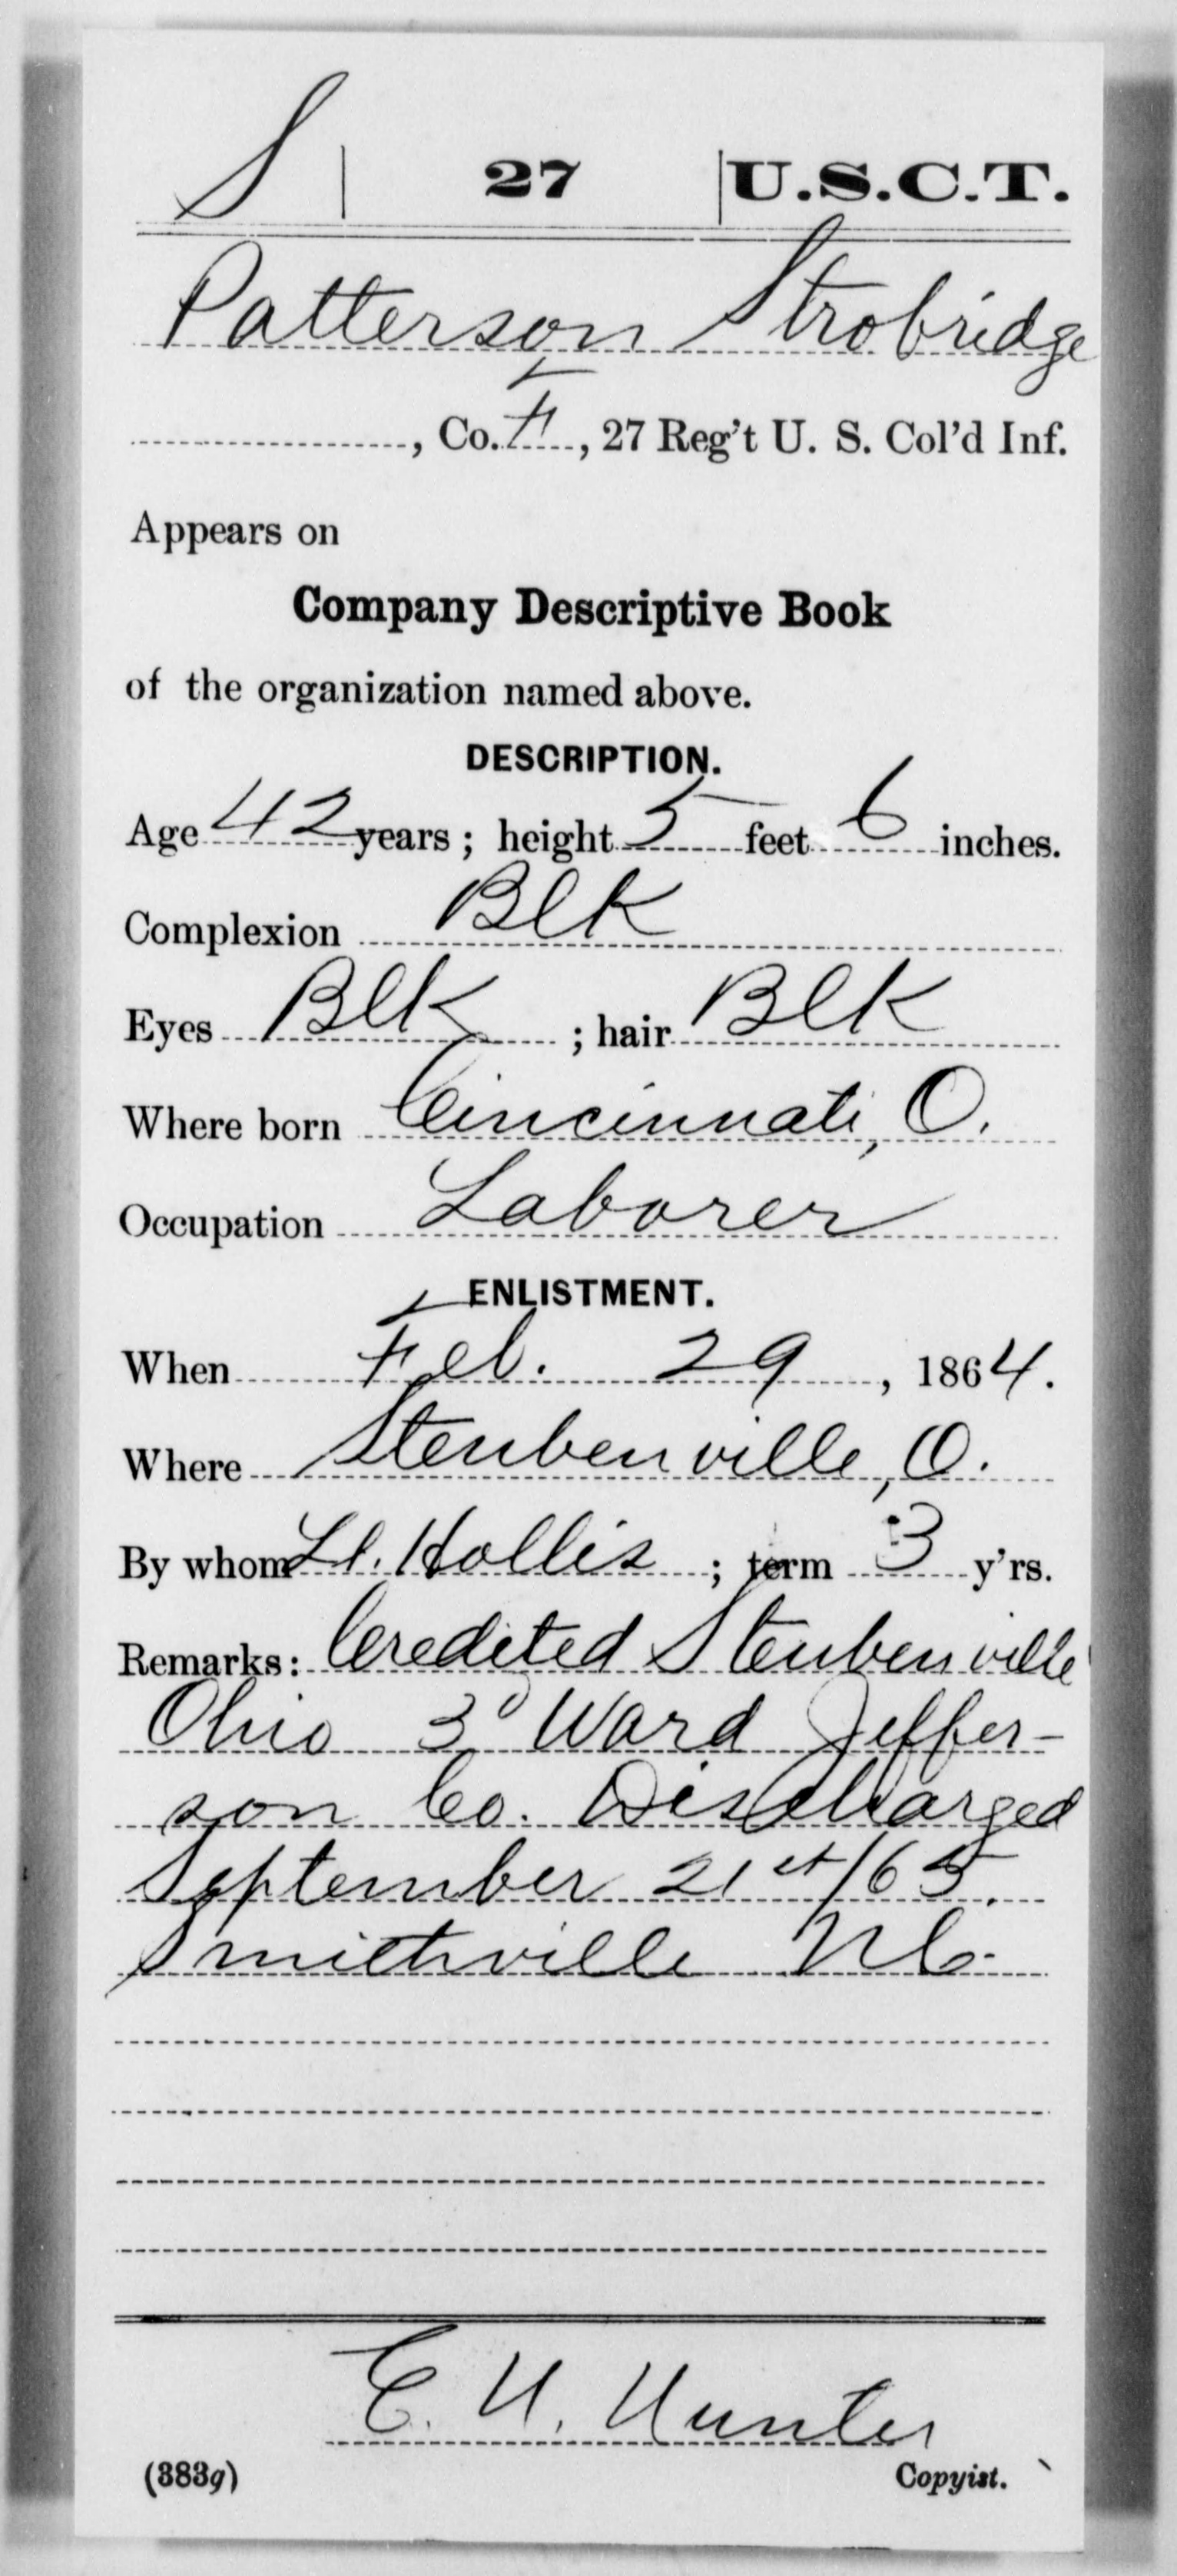 S | 27 | U.S.C.T.
Patterson Strobridge
, Co. F, 27 Reg't U. S. Col'd Inf.
Appears on
Company Descriptive Book
of the organization named above.
DESCRIPTION.
Age 42 years; height 5 feet 6 inches.
Complexion Blk
Eyes Blk ; hair Blk
Where born Cincinnati, O.
Occupation Laborer
ENLISTMENT.
When Feb. 29, 1864.
Where Steubenville, O.
By whom Lt. Hollis ; term 3 y'rs.
Remarks: Credited Steubenville
Ohio 3d Ward Jeffer-
son Co. Discharged
September 21st/65.
Smithville NC.
C. H. Hunter
(383g) Copyist.